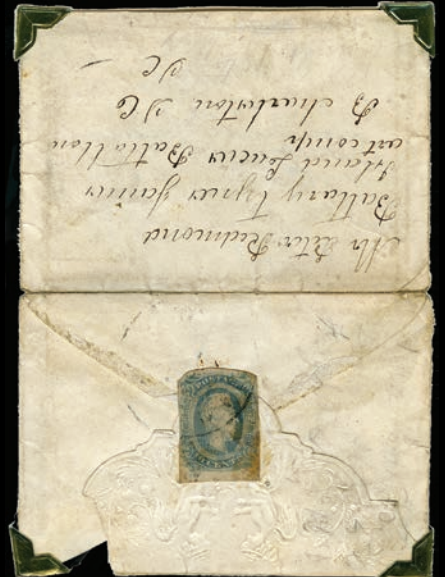 Mr Peter Redmond
Battary Tynes James
Island Lucus Battallon
art comp
B Charleston SC
SC